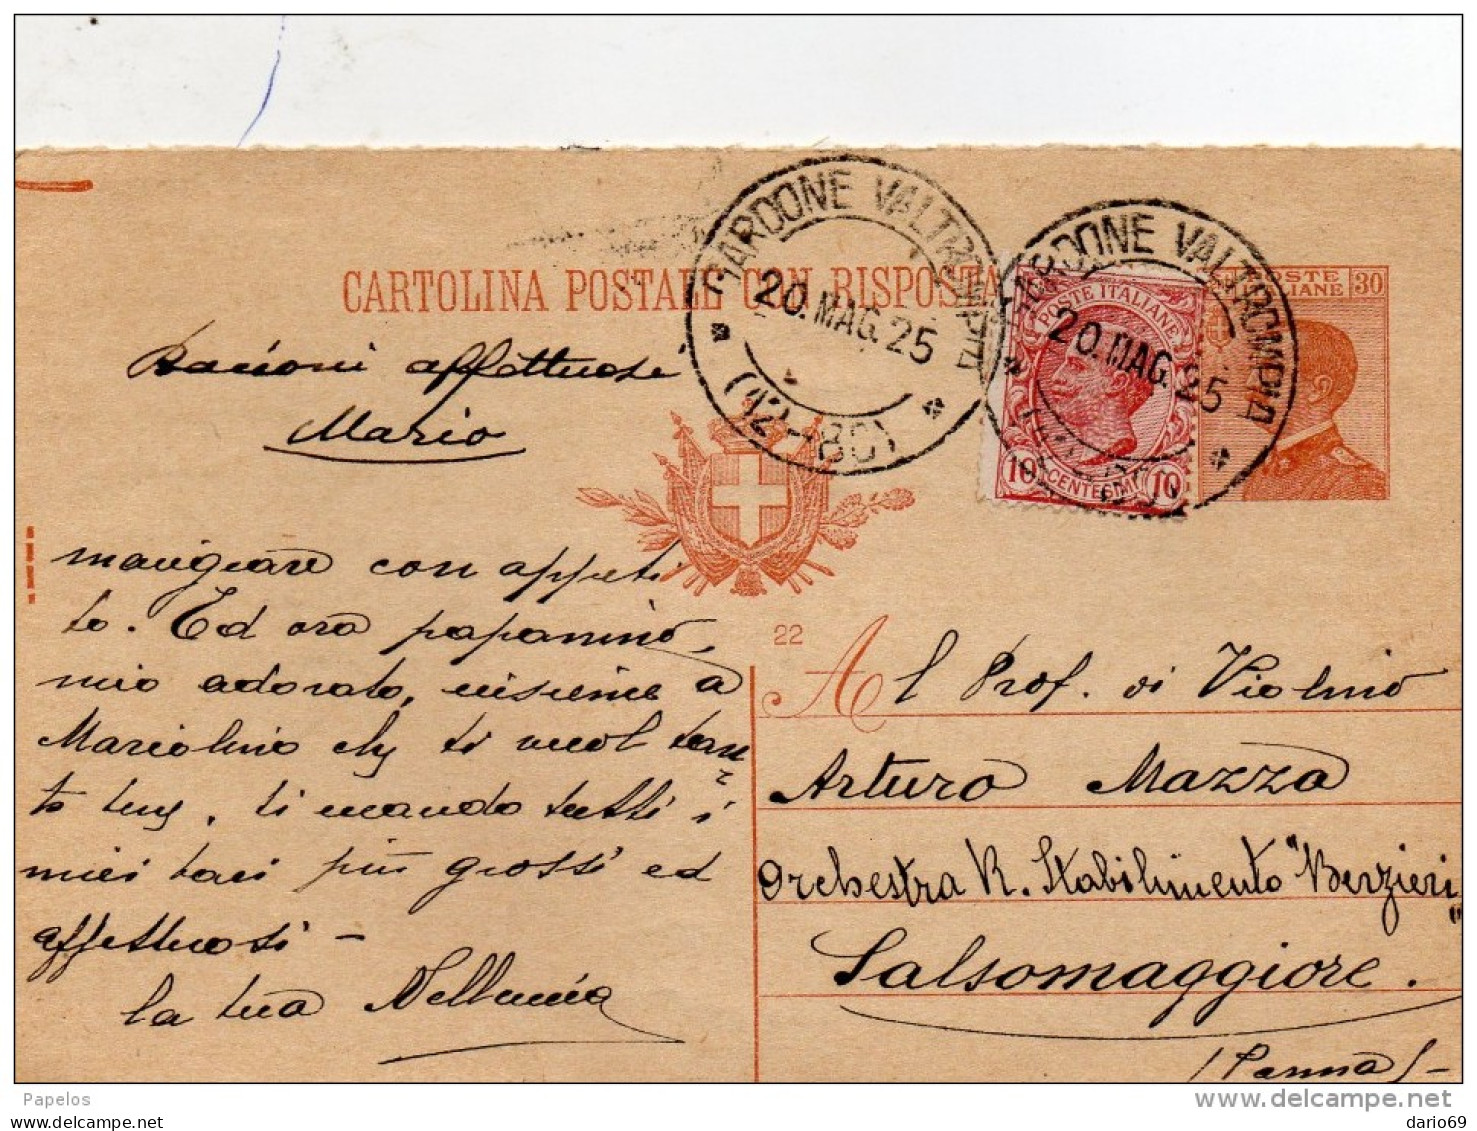 CARTOLINA POSTALE CON RISPOSTA
GARDONE VALTROMPIA
20.MAG.25
(12-80)
GARDONE VALTROMPIA
20.MAG.25
POSTE ITALIANE
10 CENTESIMI 10
POSTE
ITALIANE 30
Bacioni affettuosi
Mario
mangiare con appeti
to. Ed ora papanino,
mio adorato, insieme a
Mariolino che ti vuol tan
to bene, ti mando tutti i
miei baci più grossi ed
affettuosi –
la tua
22
Al Prof. di Violino
Arturo Mazza
Orchestra R. Stabilimento "Berzieri"
Salsomaggiore.
(Parma)-
Papelos
www.delcampe.net
dario69